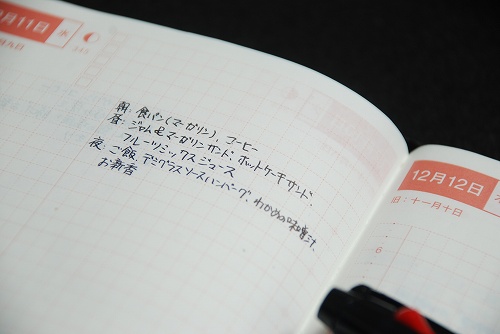 月11日 水
345
朝:食パン(マーガリン)、コーヒー
昼:ジャム&マーガリンサンド、ホットケーキサンド、
フルーツミックスジュース
夜:ご飯、デミグラスソースハンバーグ、わかめの味噌汁、
お新香
12月12日
旧:十一月十日
6